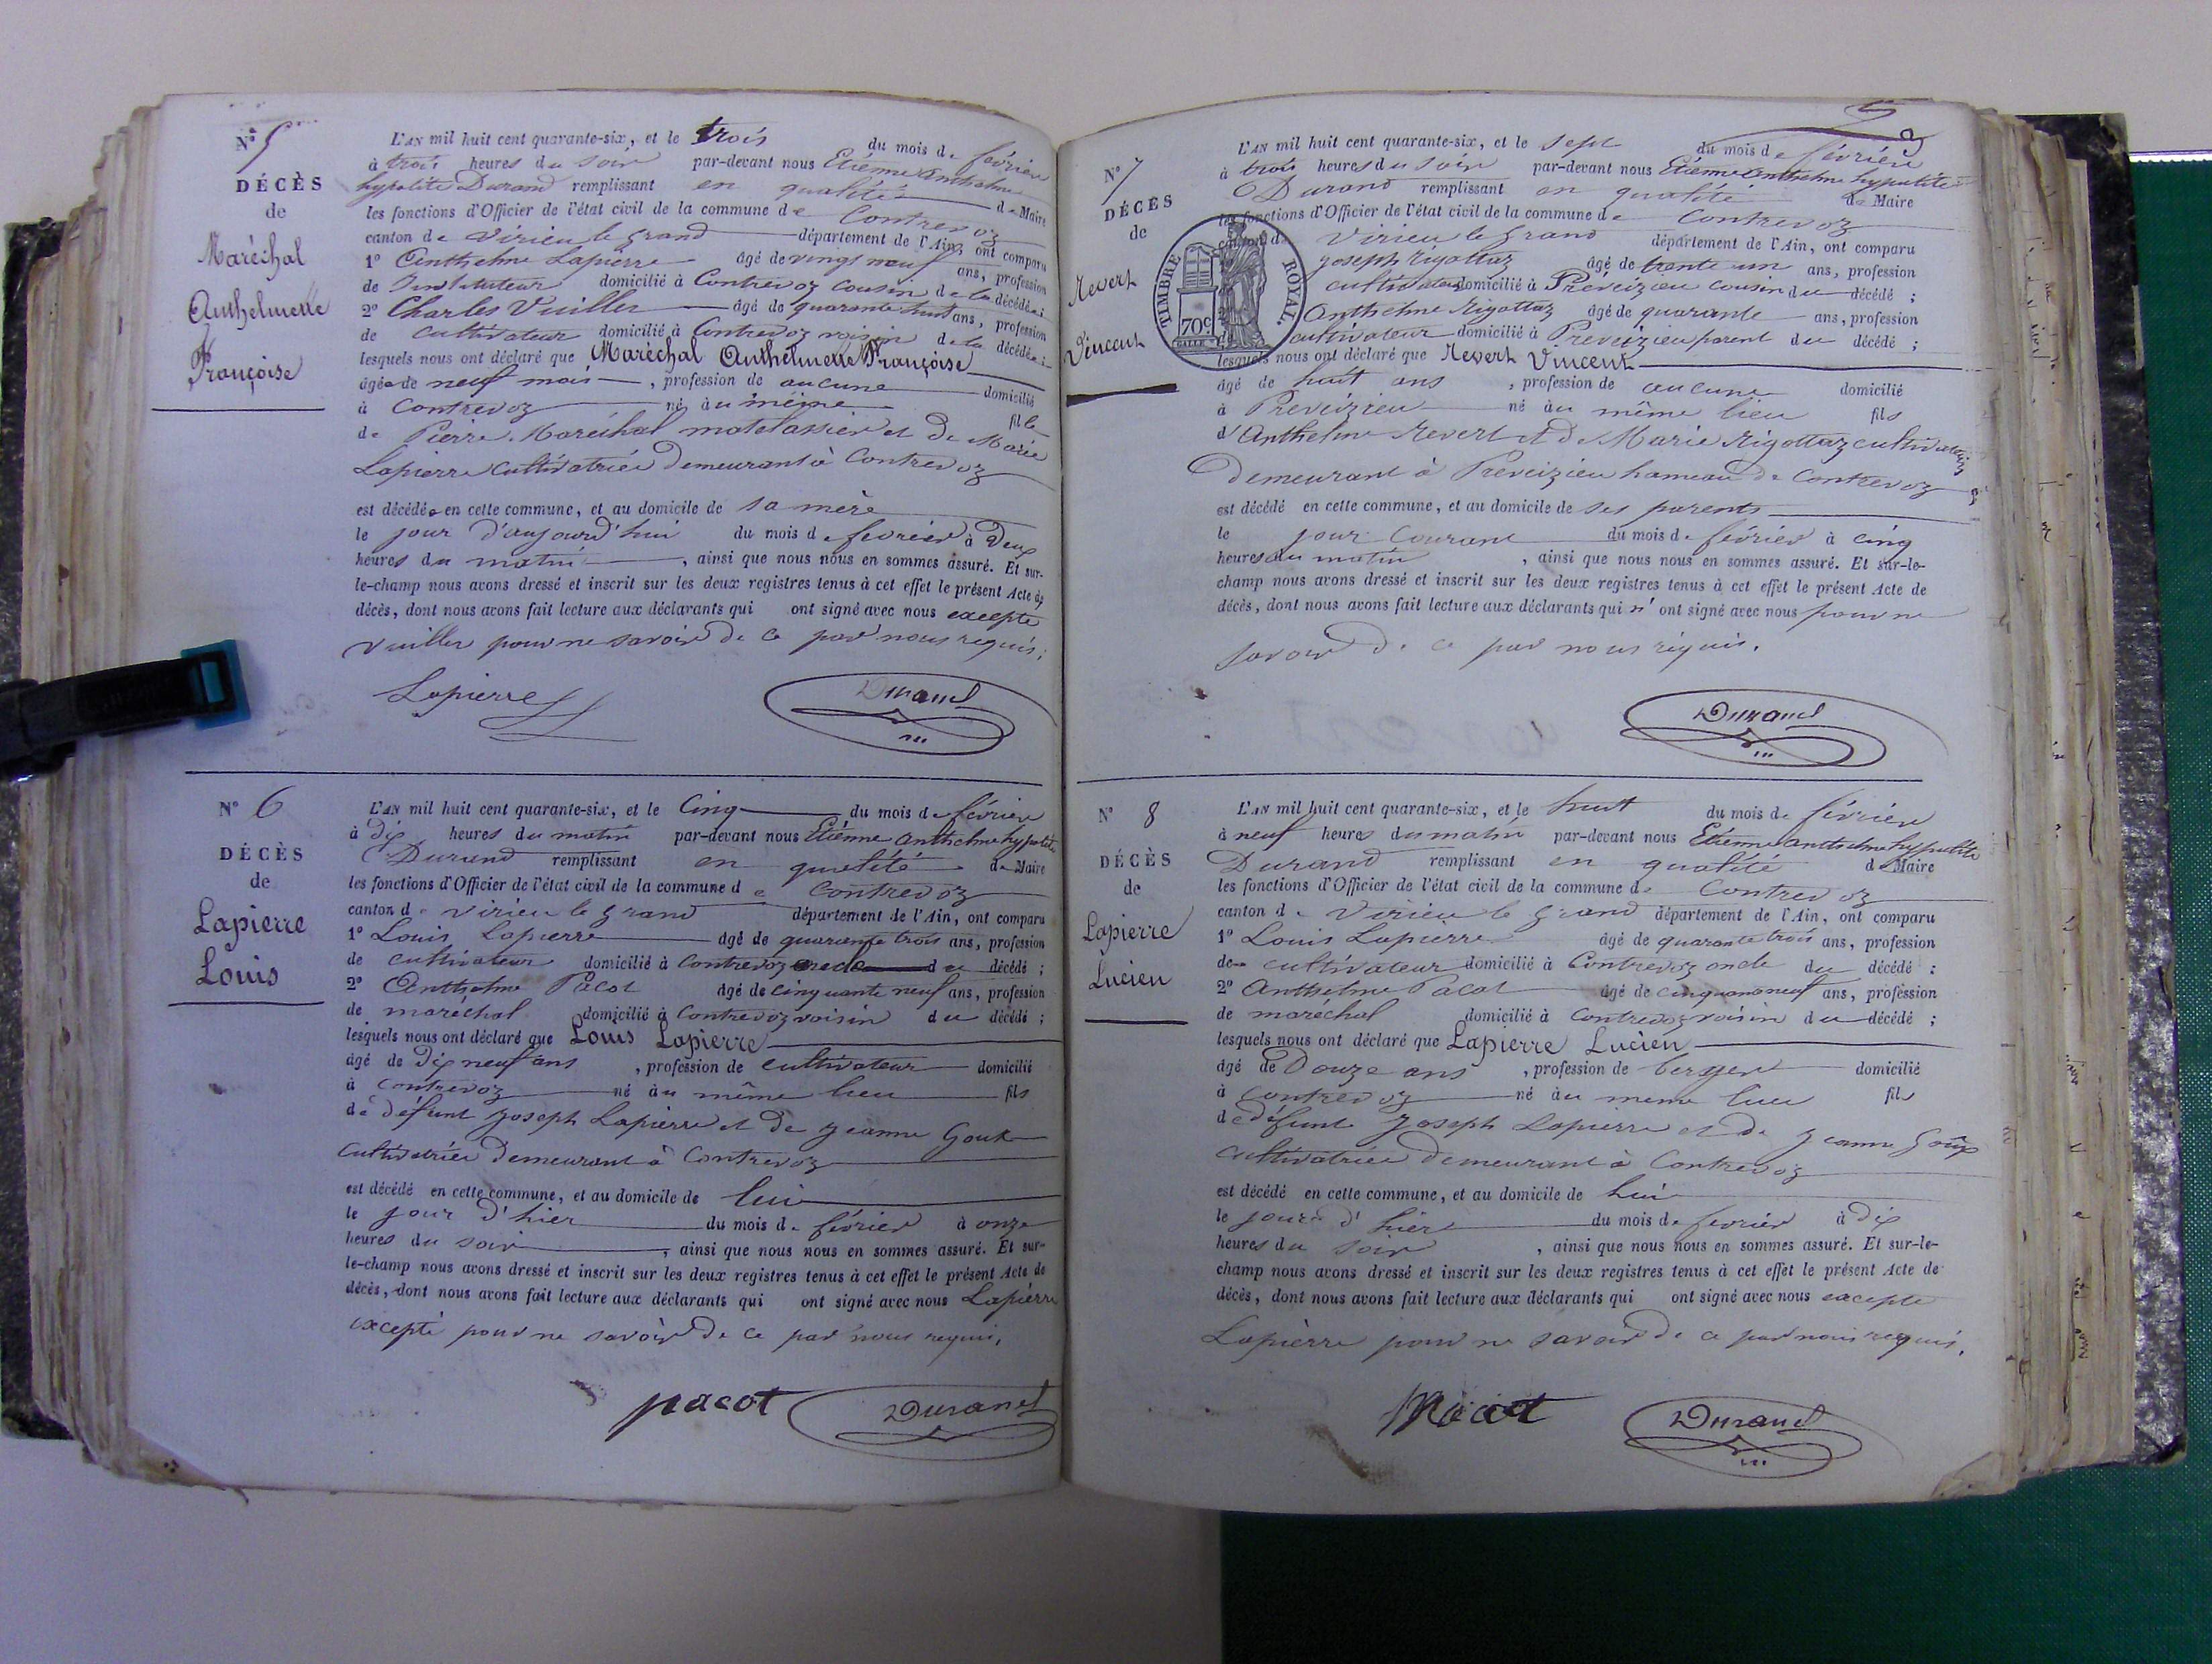 N° 5
DÉCÈS
de
Maréchal
Anthelmette
Françoise
L'AN mil huit cent quarante-six, et le trois du mois de février
à trois heures du soir par-devant nous Etienne anthelme
hypolite Durand remplissant en qualité de Maire
les fonctions d'Officier de l'état civil de la commune de Contrevoz
canton de Virieu le grand département de l'Ain, ont comparu
1° Anthelme Lapierre âgé de vingt neuf ans, profession
de Instituteur domicilié à Contrevoz cousin de la décédée;
2° Charles Vuiller âgé de quarante huit ans, profession
de cultivateur domicilié à Contrevoz voisin de la décédée;
lesquels nous ont déclaré que Maréchal Anthelmette Françoise
âgée de neuf mois, profession de aucune domicilié
à Contrevoz né au même fille
de Pierre Maréchal matelassier et de Marie
Lapierre cultivatrice demeurant à Contrevoz
est décédée en cette commune, et au domicile de sa mère
le jour d'aujourd'hui du mois de fevrier à deux
heures du matin, ainsi que nous nous en sommes assuré. Et sur-
le-champ nous avons dressé et inscrit sur les deux registres tenus à cet effet le présent Acte de
décès, dont nous avons fait lecture aux déclarants qui ont signé avec nous excepté
Vuiller pour ne savoir de ce par nous requis;
Lapierre Durand
N° 6
DÉCÈS
de
Lapierre
Louis
L'AN mil huit cent quarante-six, et le Cinq du mois de février
à dix heures du matin par-devant nous Etienne anthelme hypolite
Durand remplissant en qualité de Maire
les fonctions d'Officier de l'état civil de la commune de Contrevoz
canton de Virieu le grand département de l'Ain, ont comparu
1° Louis Lapierre âgé de quarante trois ans, profession
de cultivateur domicilié à Contrevoz oncle du décédé;
2° Anthelme Pacot âgé de cinquante neuf ans, profession
de maréchal domicilié à Contrevoz voisin du décédé;
lesquels nous ont déclaré que Louis Lapierre
âgé de dix neuf ans, profession de cultivateur domicilié
à Contrevoz né au même lieu fils
de défunt Joseph Lapierre et de Jeanne
cultivatrice demeurant à Contrevoz
est décédé en cette commune, et au domicile de lui
le jour d'hier du mois de février à onze
heures du soir, ainsi que nous nous en sommes assuré. Et sur-
le-champ nous avons dressé et inscrit sur les deux registres tenus à cet effet le présent Acte de
décès, dont nous avons fait lecture aux déclarants qui ont signé avec nous Lapierre
excepté pour ne savoir de ce par nous requis.
pacot Durand
N° 7
DÉCÈS
de
Revert
Vincent
TIMBRE ROYAL.
70c
L'AN mil huit cent quarante-six, et le sept du mois de février
à trois heures du soir par-devant nous Etienne anthelme hypolite
Durand remplissant en qualité de Maire
les fonctions d'Officier de l'état civil de la commune de Contrevoz
canton de Virieu le grand département de l'Ain, ont comparu
Joseph Rigottaz âgé de trente un ans, profession
cultivateur domicilié à Preveizieu cousin du décédé;
Anthelme Rigottaz âgé de quarante ans, profession
cultivateur domicilié à Preveizieu parent du décédé;
lesquels nous ont déclaré que Revert Vincent
âgé de huit ans, profession de aucune domicilié
à Preveizieu né au même lieu fils
d'Anthelme Revert et de Marie Rigottaz cultivateurs
demeurant à Preveizieu hameau de Contrevoz
est décédé en cette commune, et au domicile de ses parents
le jour courant du mois de février à cinq
heures du matin, ainsi que nous nous en sommes assuré. Et sur-le-
champ nous avons dressé et inscrit sur les deux registres tenus à cet effet le présent Acte de
décès, dont nous avons fait lecture aux déclarants qui n'ont signé avec nous pour ne
savoir de ce par nous requis.
Durand
N° 8
DÉCÈS
de
Lapierre
Lucien
L'AN mil huit cent quarante-six, et le huit du mois de février
à neuf heures du matin par-devant nous Etienne anthelme hypolite
Durand remplissant en qualité de Maire
les fonctions d'Officier de l'état civil de la commune de Contrevoz
canton de Virieu le grand département de l'Ain, ont comparu
1° Louis Lapierre âgé de quarante trois ans, profession
de cultivateur domicilié à Contrevoz oncle du décédé;
2° Anthelme Pacot âgé de cinquante neuf ans, profession
de maréchal domicilié à Contrevoz voisin du décédé;
lesquels nous ont déclaré que Lapierre Lucien
âgé de Douze ans, profession de berger domicilié
à Contrevoz né au même lieu fils
de défunt Joseph Lapierre et de Jeanne
cultivatrice demeurant à Contrevoz
est décédé en cette commune, et au domicile de lui
le jour d'hier du mois de fevrier à dix
heures du soir, ainsi que nous nous en sommes assuré. Et sur-le-
champ nous avons dressé et inscrit sur les deux registres tenus à cet effet le présent Acte de
décès, dont nous avons fait lecture aux déclarants qui ont signé avec nous excepté
Lapierre pour ne savoir de ce par nous requis.
Pacot Durand